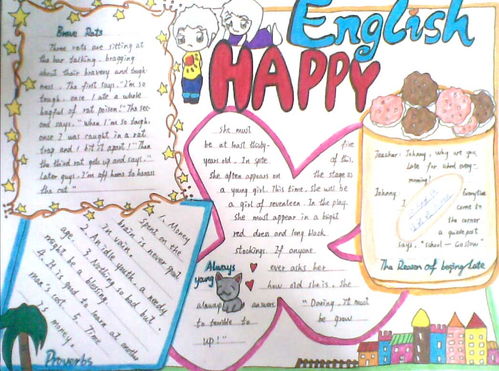 English
HAPPY
Brave Rats
Three rats are sitting at
the bar talking. bragging
about their bravery and tough-
ness. The first says. "I'm so
tough. once I ate a whole
bagful of rat poison!" The sec-
ond says. "When I'm so tough.
once I was caught in a rat
trap and I bit it apart!" Then
the third rat gets up and says. "
later guys. I'm off home to harass
the cat."
she must
be at least thirty-five
years-old. In spite of this,
she often appears on the stage as
a young girl. This time. she will be
a girl of seventeen. In the play.
she must appear in a bright
red dress and long black
stockings. If anyone
ever asks her
how old she is. she
always answer. "Daring. It must
be
to terrible to grow
up!"
Always
young
Teacher: Johnny, Why are you
late for school every
morning?
Johnny
Everytime
come to
the corner
a guidepost
says. "School - Go Slow".
The Reason of being Late
1. Money
spent on the
brain is never spent
in vain.
2. An idle youth. a needy
age. 3. Nothing so bad but
might be a blessing.
4. It is good to learn at another
man's cost. 5. Time
is money.
Proverbs